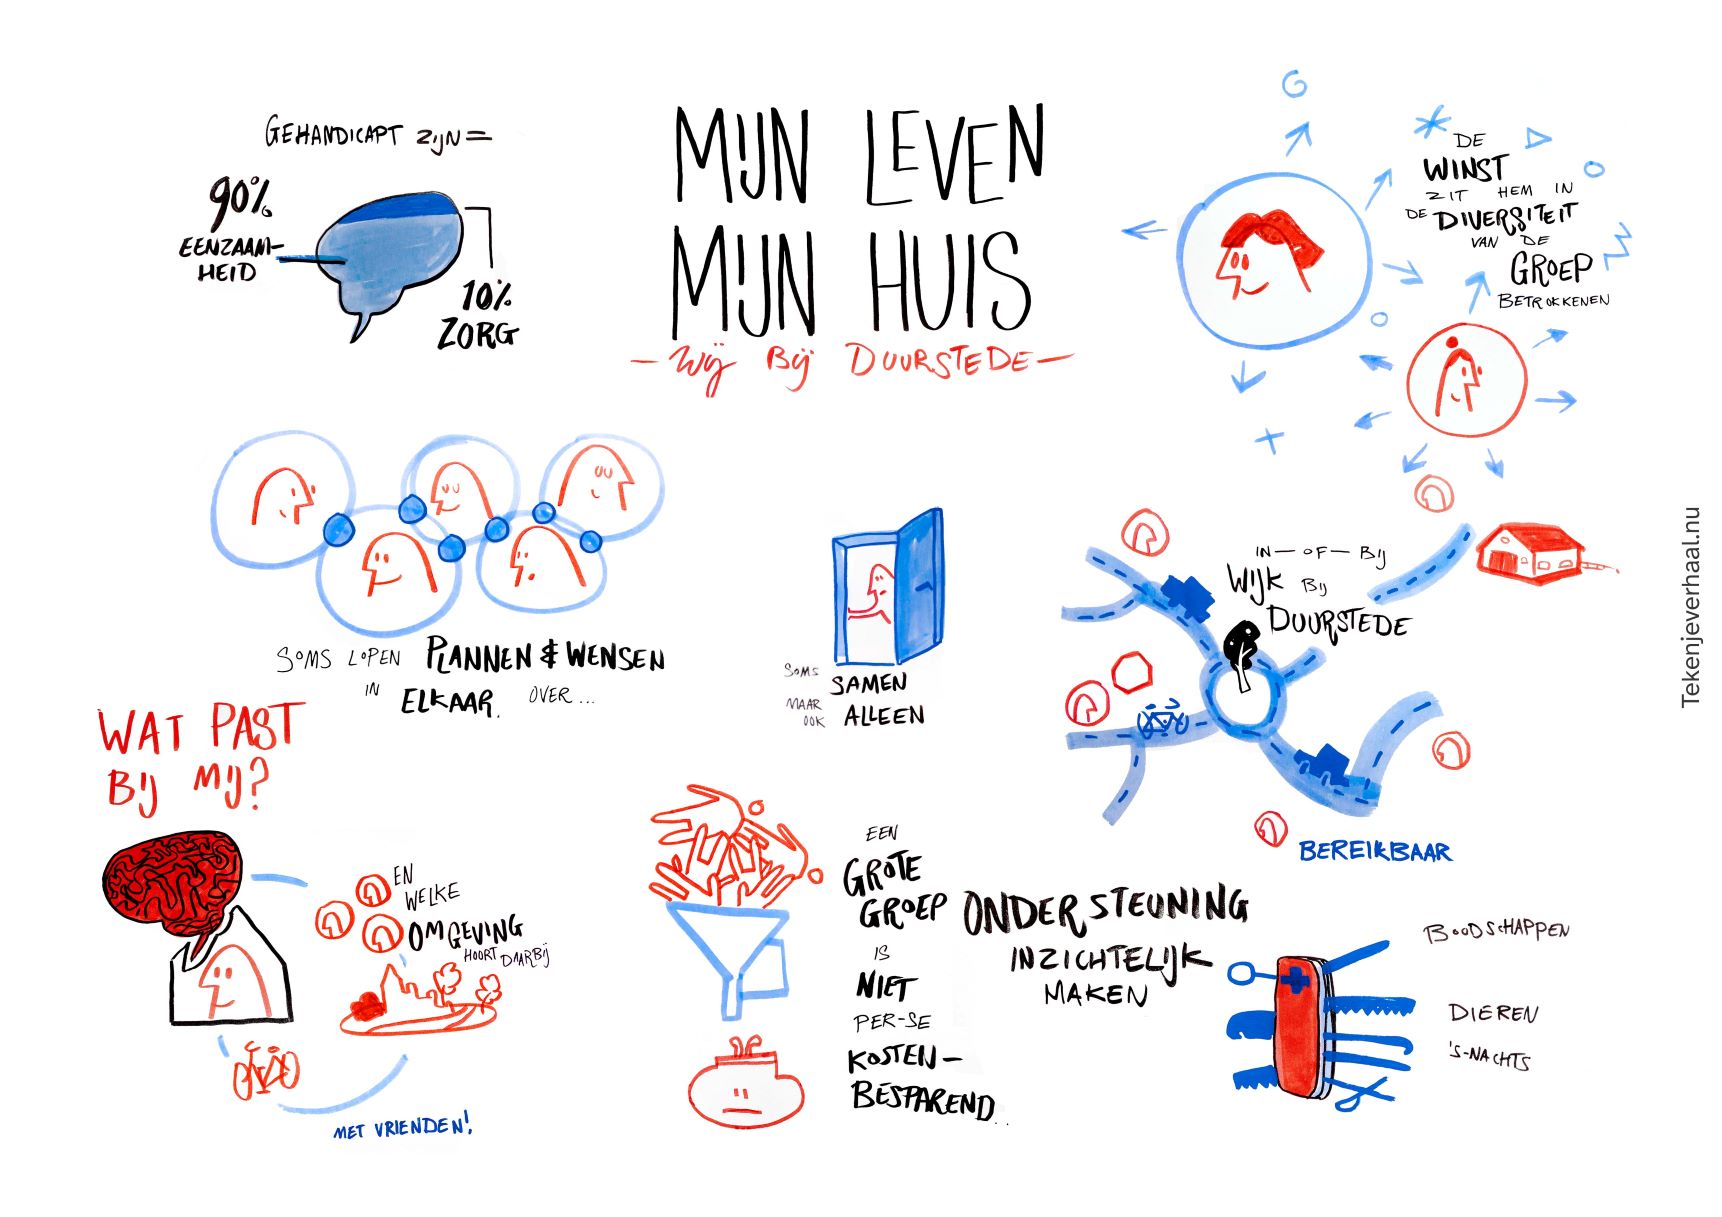 GEHANDICAPT ZIJN =
90%
EENZAAM-
HEID
10%
ZORG
MIJN LEVEN
MIJN HUIS
- Wij Bij DUURSTEDE -
DE
WINST
ZIT HEM IN
DE DIVERSITEIT
VAN DE
GROEP
BETROKKENEN
SOMS LOPEN PLANNEN & WENSEN
IN ELKAAR OVER...
SOMS SAMEN
MAAR
OOK ALLEEN
IN - OF - Bij
WIJK Bij
DUURSTEDE
BEREIKBAAR
WAT PAST
Bij Mij?
EN
WELKE
OMGEVING
HOORT DAARBIJ
MET VRIENDEN!
EEN
GROTE
GROEP
IS
NIET
PER-SE
KOSTEN-
BESPAREND..
ONDERSTEUNING
INZICHTELIJK
MAKEN
BOODSCHAPPEN
DIEREN
'S-NACHTS
Tekenjeverhaal.nu